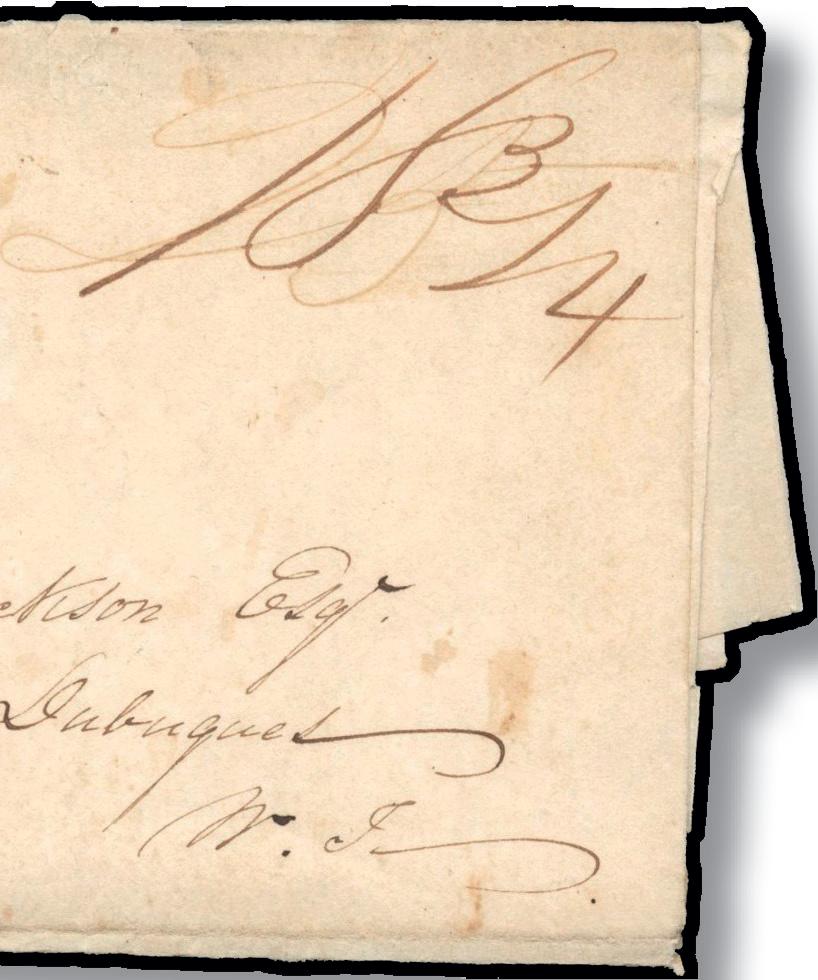 18 3/4
ckson Esqr.
Dubuques
W. T.